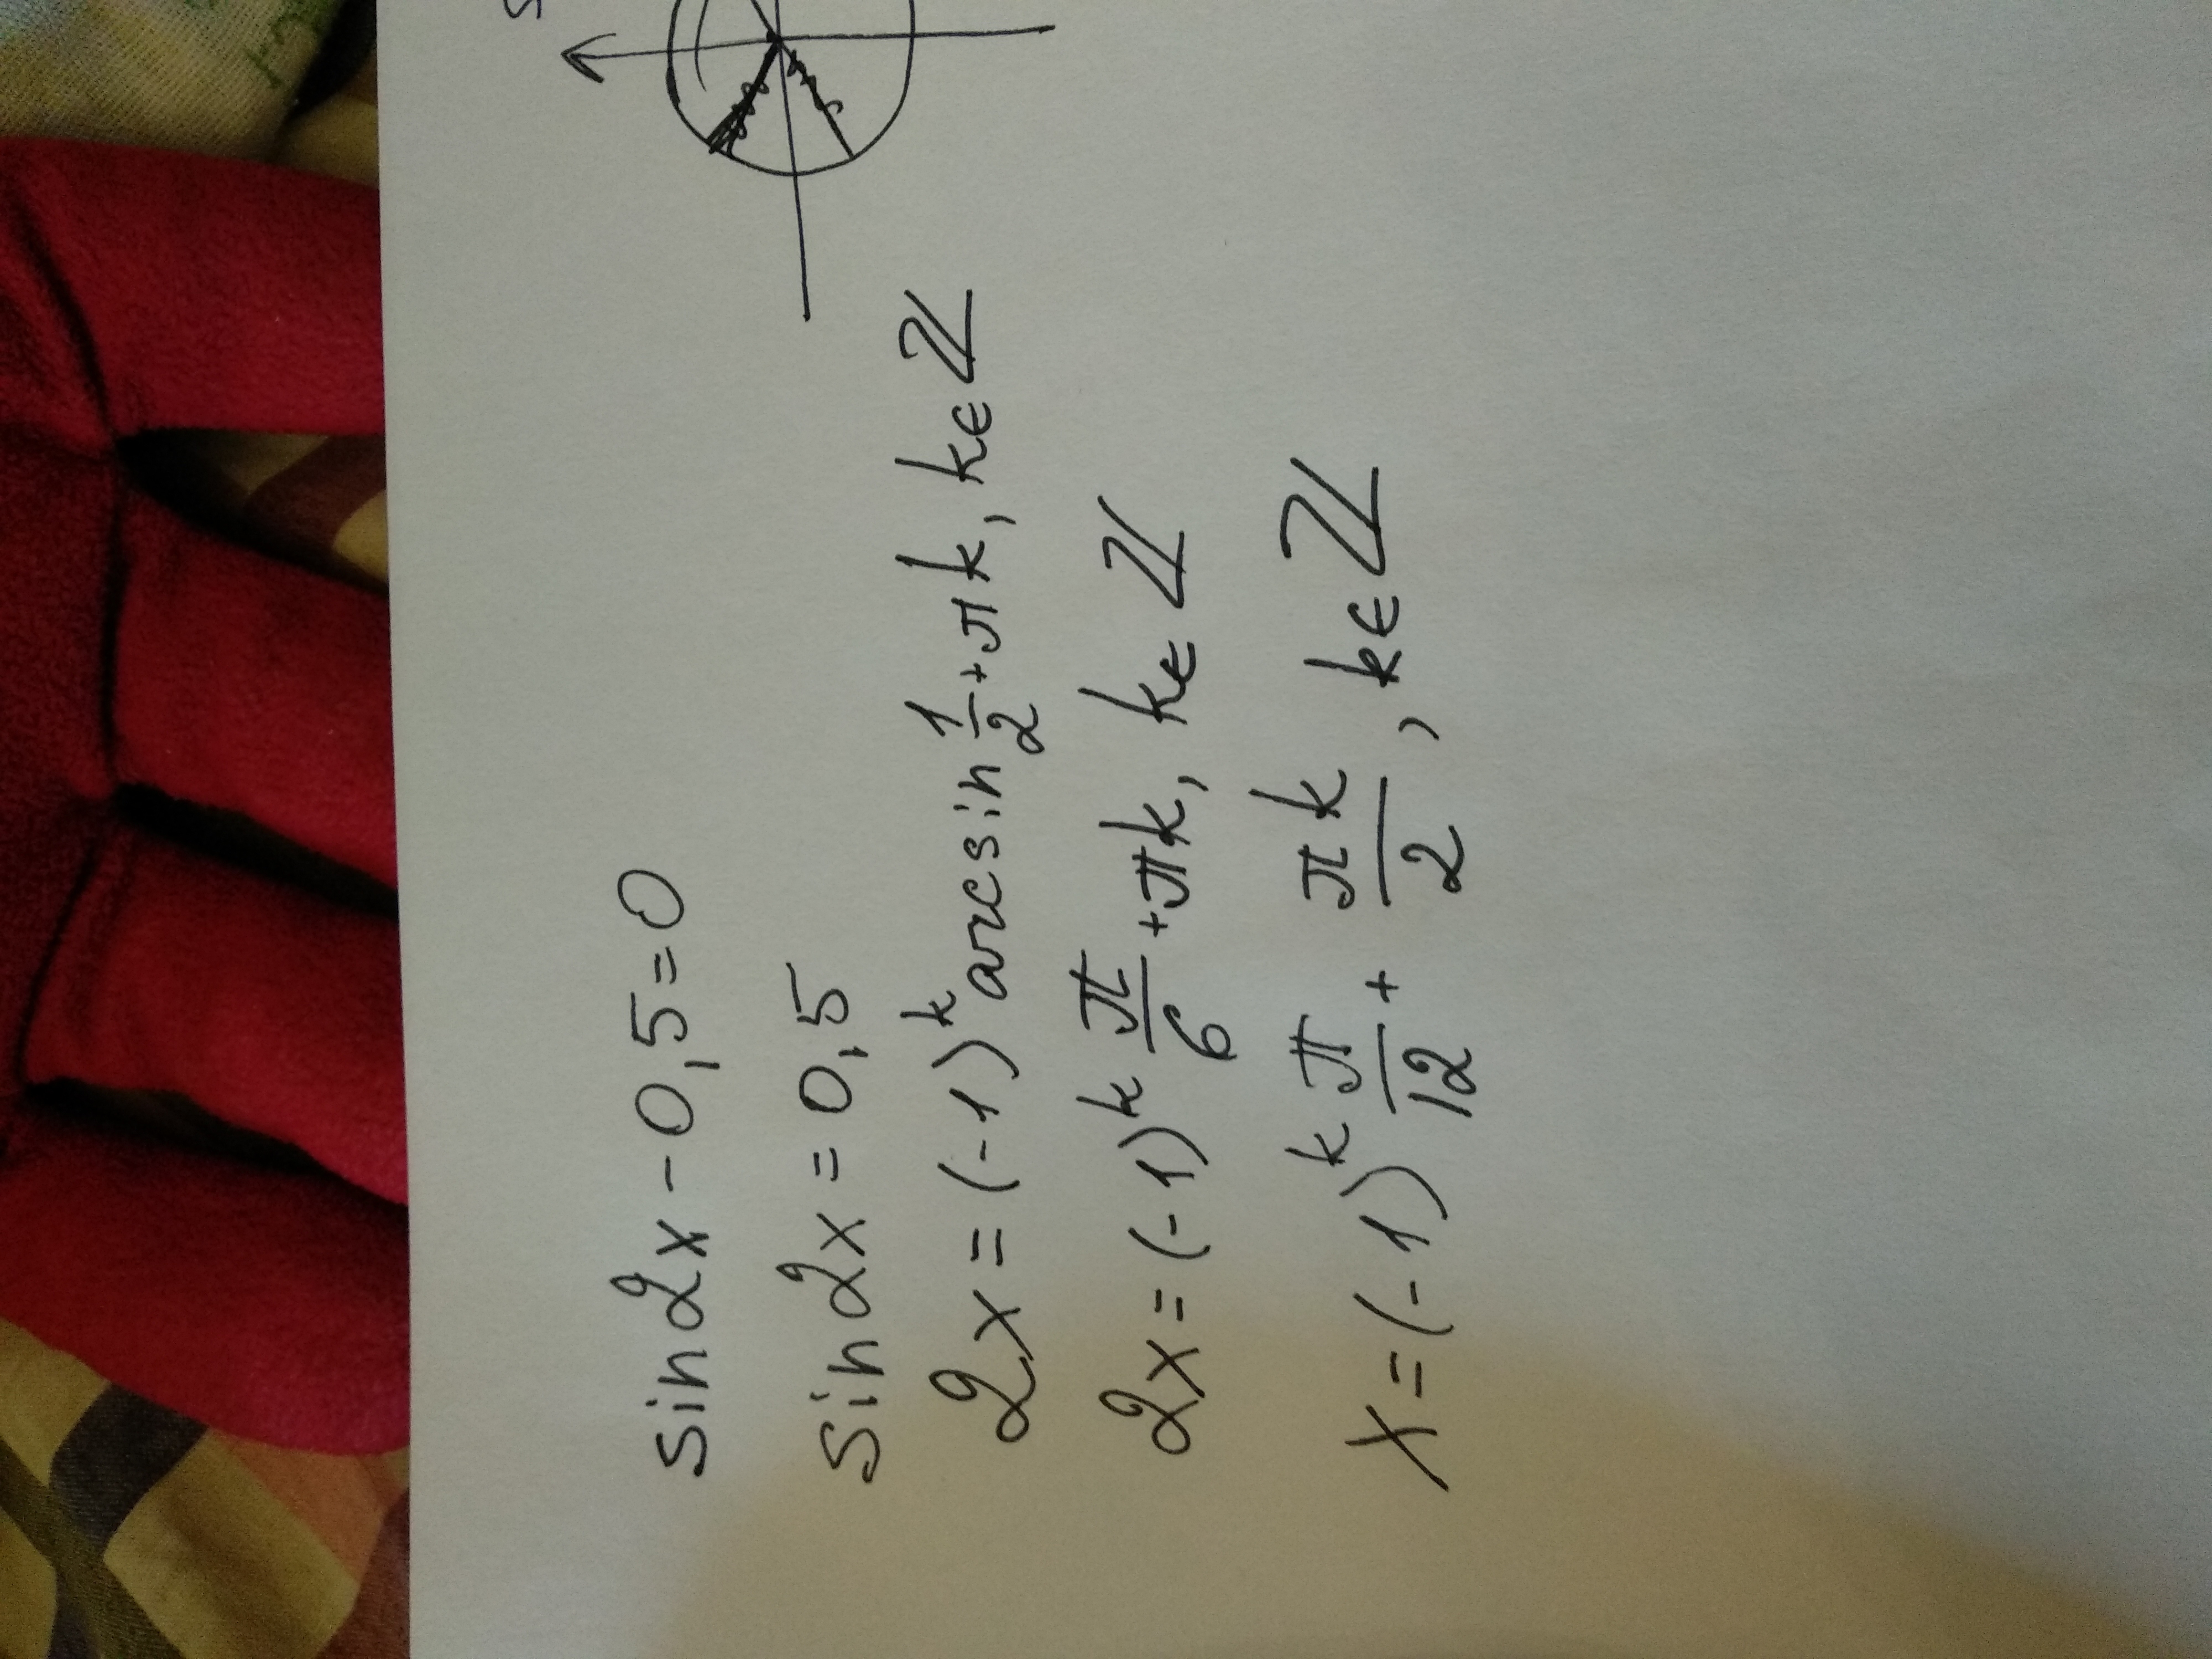 sin2x-0,5=0
sin2x=0,5
2x=(-1)^k arcsin 1/2+πk, k∈Z
2x=(-1)^k π/6+πk, k∈Z
x=(-1)^k π/12+πk/2, k∈Z